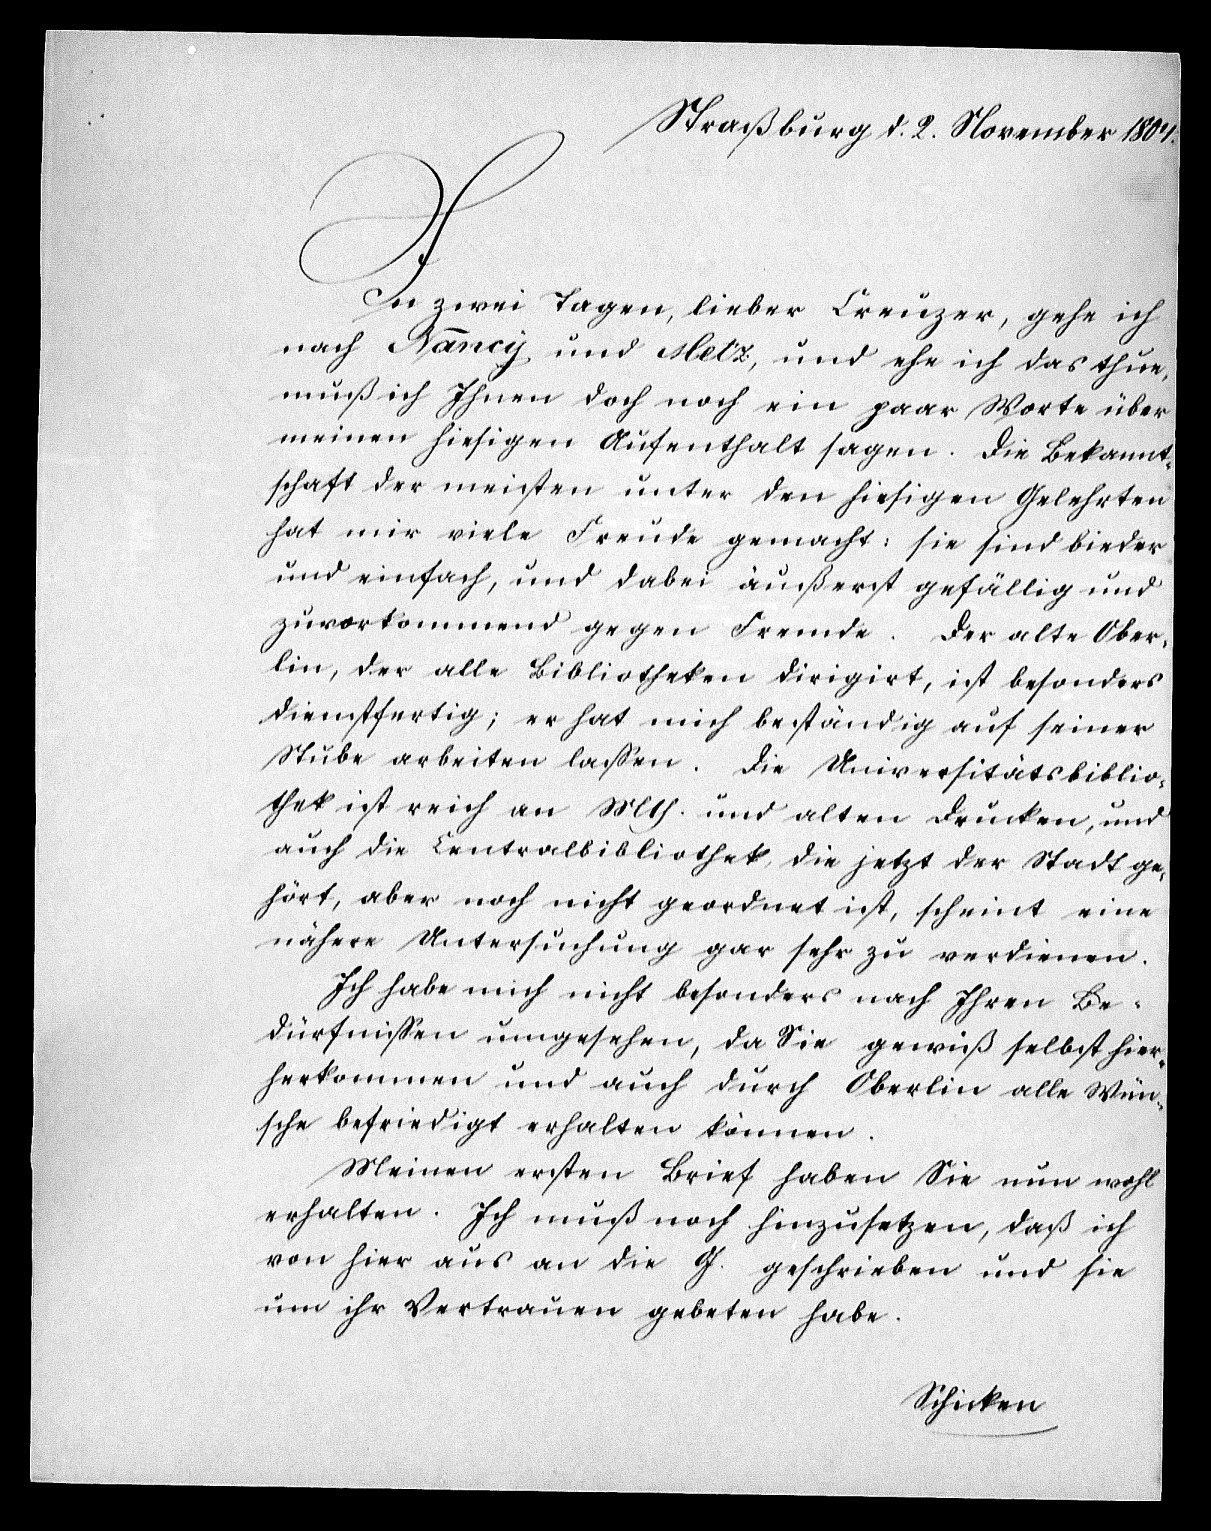 Straßburg d. 2. November 1804.
In zwei Tagen, lieber Creuzer, gehe ich
nach Nancy und Metz, und ehe ich das thue,
muß ich Ihnen doch noch ein paar Worte über
meinen hiesigen Aufenthalt sagen. Die Bekannt-
schaft der meisten unter den hiesigen Gelehrten
hat mir viele Freude gemacht: sie sind bieder
und einfach, und dabei äußerst gefällig und
zuvorkommend gegen Fremde. Der alte Ober-
lin, der alle Bibliotheken dirigirt, ist besonders
dienstfertig; er hat mich beständig auf seiner
Stube arbeiten lassen. Die Universitätsbiblio-
thek ist reich an Msh. und alten Drucken, und
auch die Centralbibliothek, die jetzt der Stadt ge-
hört, aber noch nicht geordnet ist, scheint eine
nähere Untersuchung gar sehr zu verdienen.
Ich habe mich nicht besonders nach Ihren Be-
dürfnissen umgesehen, da Sie gewiß selbst hier-
herkommen und auch durch Oberlin alle Wün-
sche befriedigt erhalten können.
Meinen ersten Brief haben Sie nun wohl
erhalten. Ich muß noch hinzusetzen, daß ich
von hier aus an die G. geschrieben und sie
um ihr Vertrauen gebeten habe.
Schicken